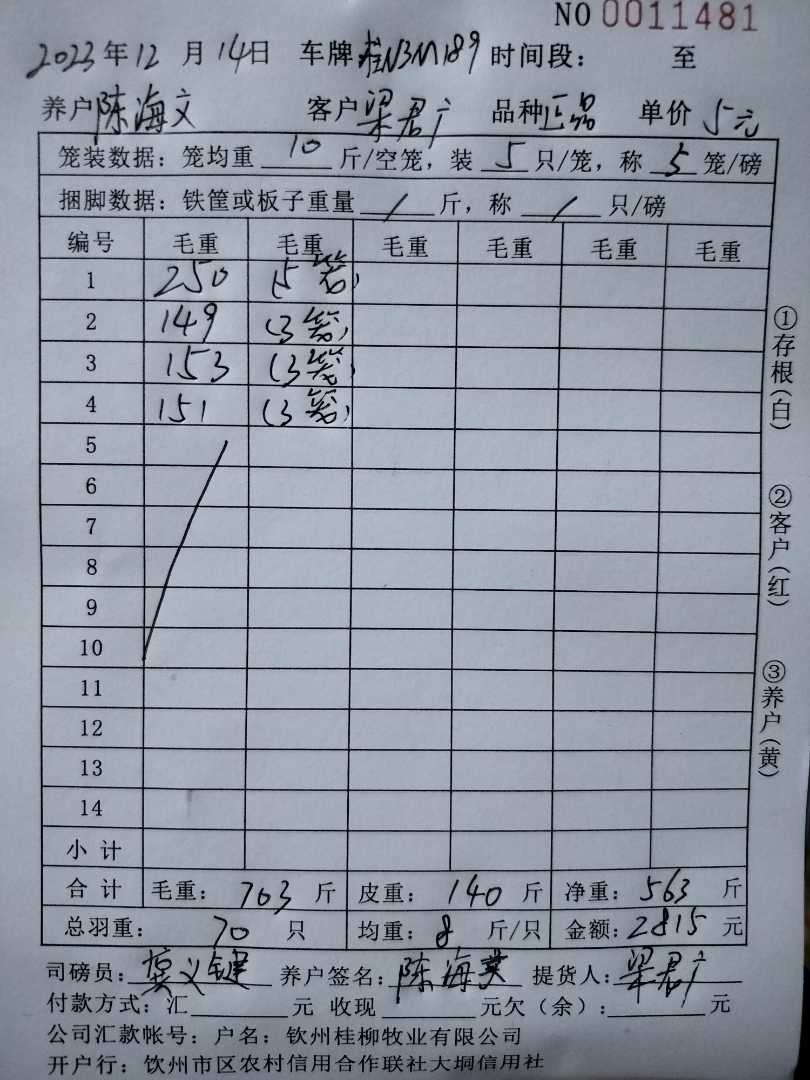 NO 0011481
2023年12月14日 车牌 桂N3M189 时间段: 至
养户 陈海文 客户 梁君广 品种 正品 单价 5元
笼装数据: 笼均重 10 斤/空笼, 装 5 只/笼, 称 5 笼/磅
捆脚数据: 铁筐或板子重量 / 斤, 称 / 只/磅
编号 毛重 毛重 毛重 毛重 毛重 毛重
1 250 (5笼)
2 149 (3笼)
3 153 (3笼)
4 151 (3笼)
5
6
7
8
9
10
11
12
13
14
小计
合计 毛重: 703 斤 皮重: 140 斤 净重: 563 斤
总羽重: 70 只 均重: 8 斤/只 金额: 2815 元
司磅员: 莫义键 养户签名: 陈海英 提货人: 梁君广
付款方式: 汇 元 收现 元欠(余): 元
公司汇款帐号: 户名: 钦州桂柳牧业有限公司
开户行: 钦州市区农村信用合作联社大垌信用社
①存根(白)
②客户(红)
③养户(黄)